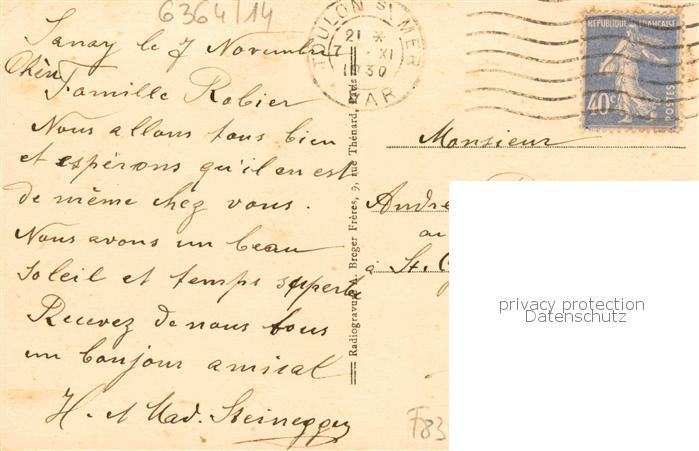 6364/14
Sanary le 7 Novembre
Chère Famille Robier
Nous allons tous bien
et espérons qu'il en est
de même chez vous.
Nous avons un beau
soleil et temps superbe
Recevez de nous tous
un bonjour amical
H. et Mad. Steinegger
TOULON S MER
21 *
7 · XI
1930
VAR
REPUBLIQUE FRANÇAISE
40c
POSTES
Radiogravure A. Breger Frères, 9, rue Thénard, Paris
Monsieur
André
au
à St.
privacy protection
Datenschutz
F83